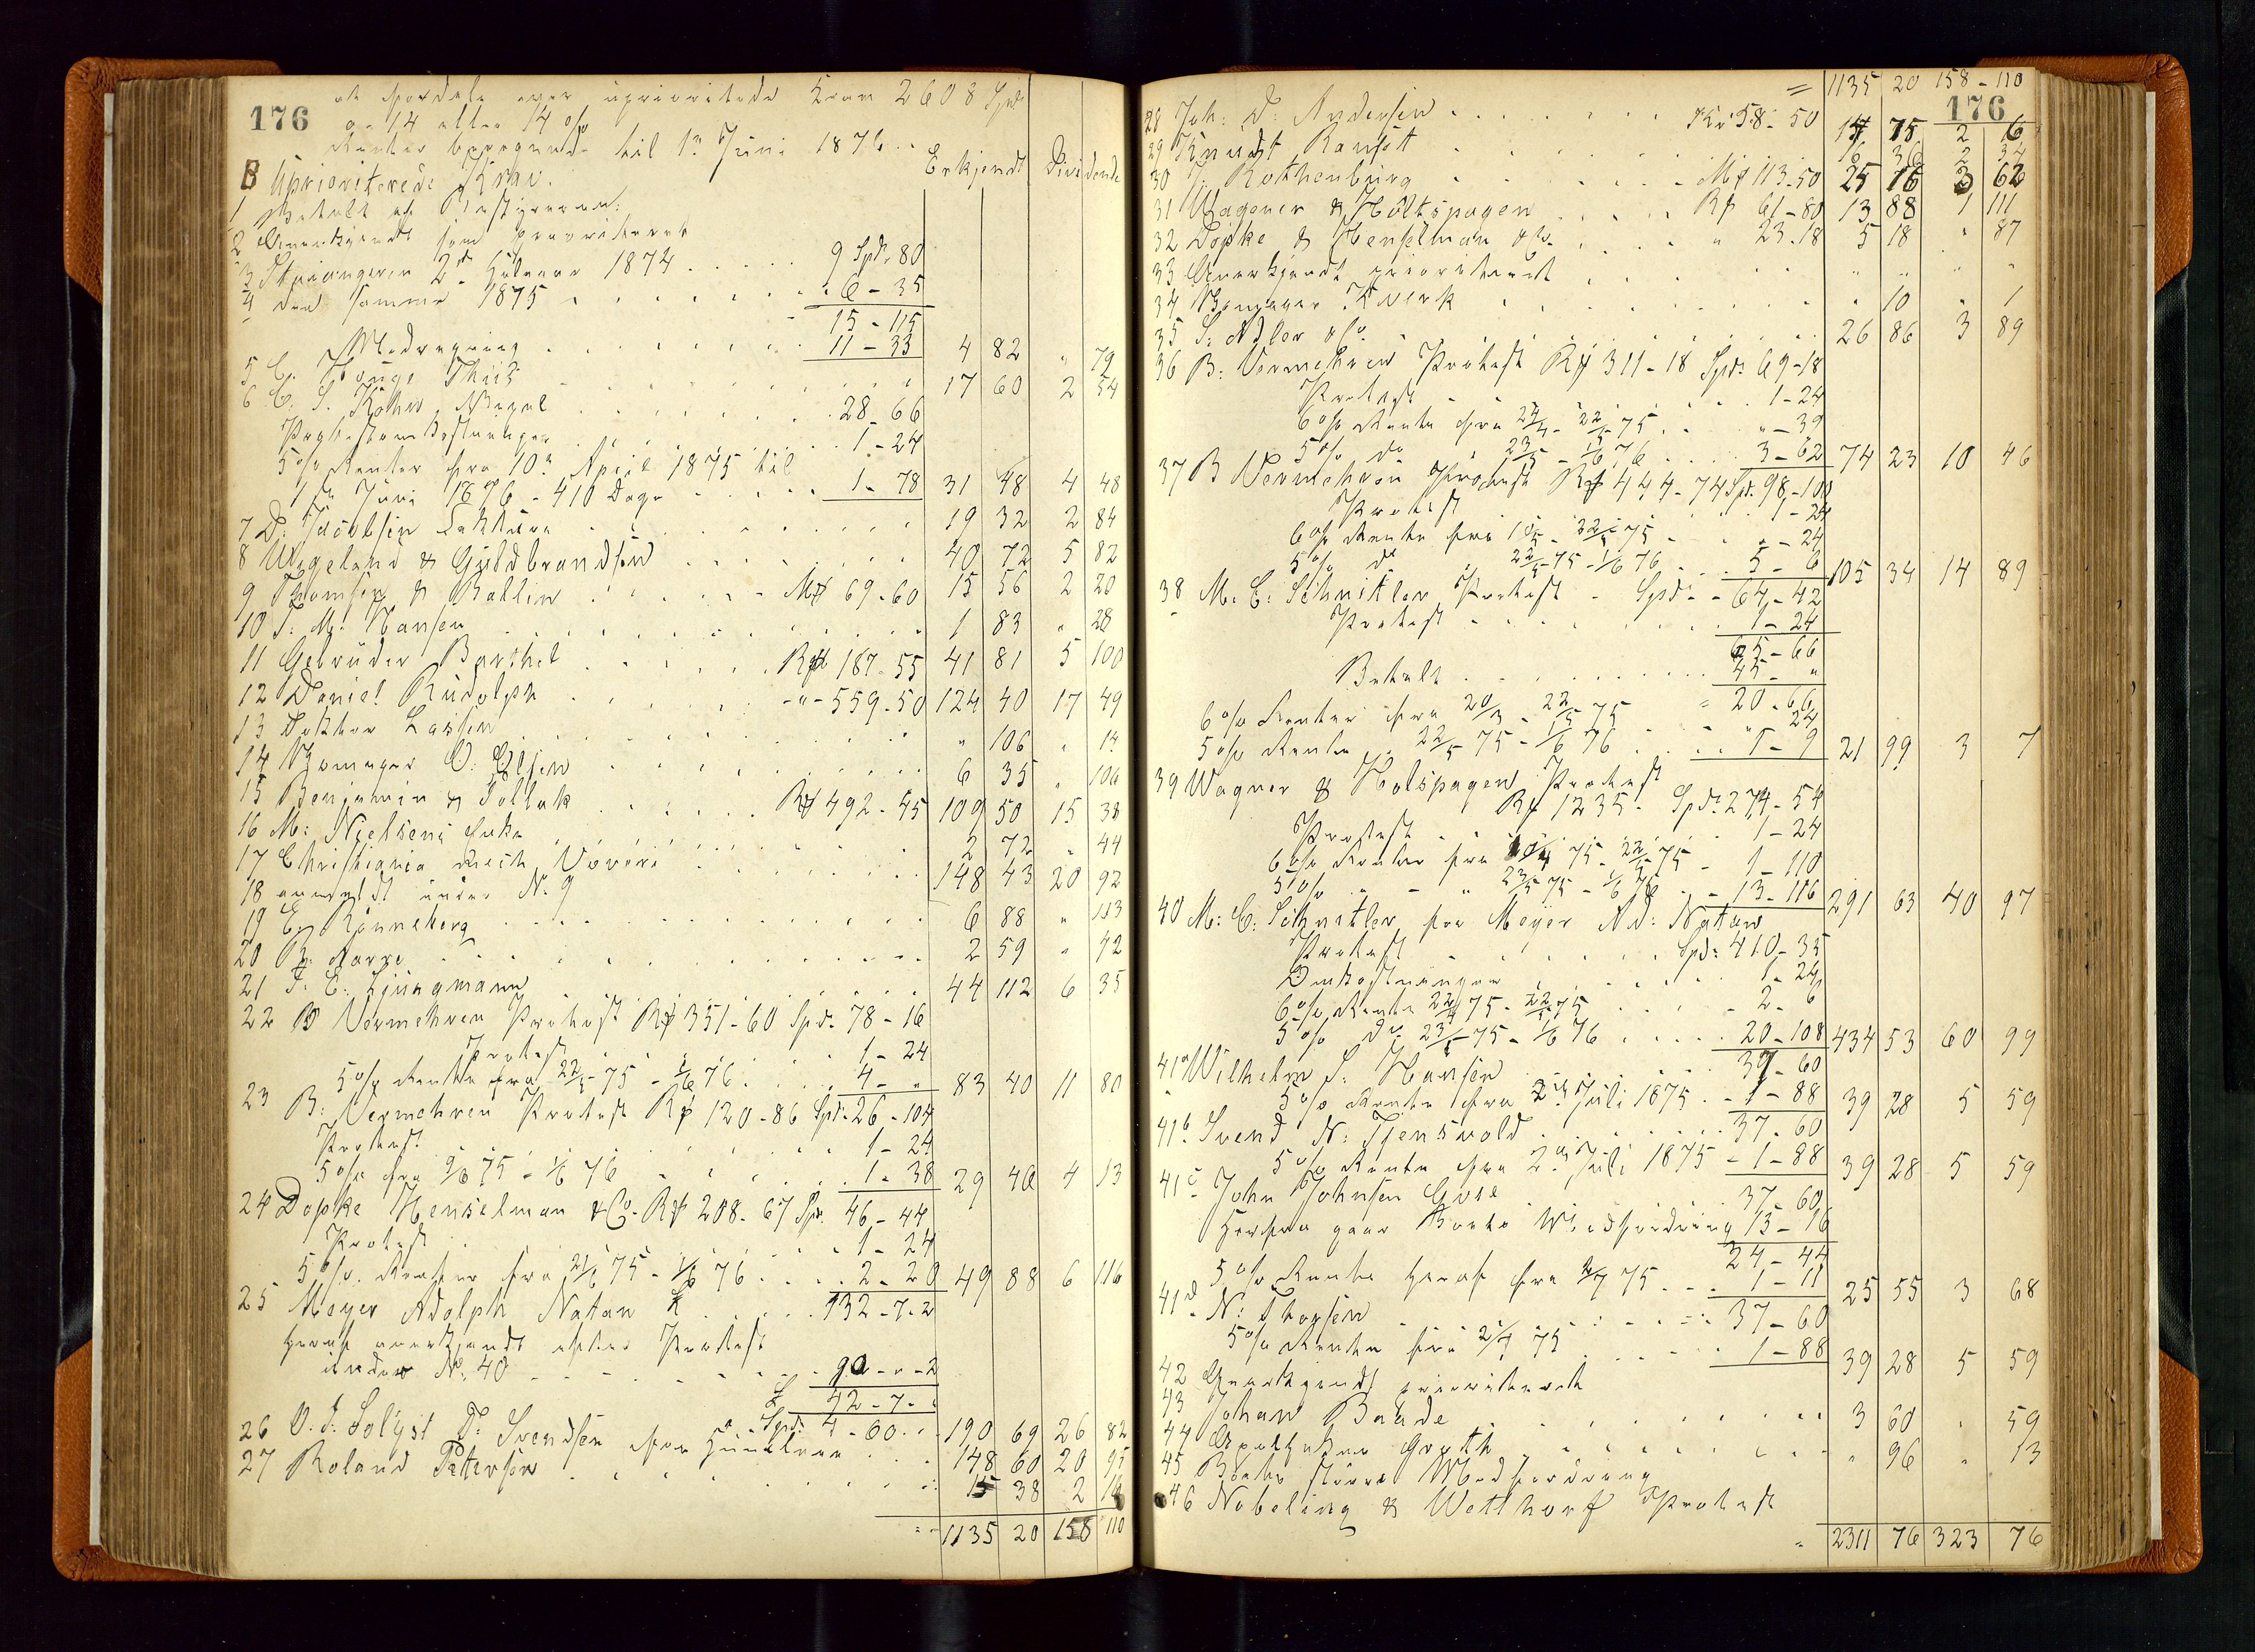 176
at fordele over uprioritede Krav 2608 Spd
a 14 eller 14 %
Renter beregnede til 1ste Juni 1876
Erkjendt Dividende
B Uprioriterede Krav.
1 Betalt af Bestyreren.
2 Anerkjendt som prioriteret
3 Skrivangeren 2det Halvaar 1874 9 Spd. 80
4 den samme 1875 6 - 35
15 - 115
Modregning 11 - 33 4 82 " 79
5 C. Houge Thiis 17 60 2 54
6 C. S. Kohn 28 - 66
1 - 24
5 % Renter fra 10de April 1875 til
1ste Juni 1876 - 410 Dage 1 - 78 31 48 4 48
7 D. Jacobsen 19 32 2 84
8 Wigeland & Guldbrandsen 40 72 5 82
9 Thomsen & Ballin M 69 - 60 15 56 2 20
10 J. M. Hansen 1 83 " 28
11 Gebruder Barthel R 187 - 55 41 81 5 100
12 Daniel Rudolph - " - 559 - 50 124 40 17 49
13 Doktor Lassen " 106 " 14
14 O. Olsen 6 35 " 106
15 Benjamin & Pollak R 492 - 45 109 50 15 38
16 M. Nielsens Enke 2 72 " 44
17 Christiania 148 43 20 92
18 anmeldt under No. 9
19 C. Rönneberg 6 88 " 113
20 2 59 " 42
21 F. E. Ljungmann 44 112 6 35
22 B Vermehren Protest R 351 - 60 Spd. 78 - 16
Protest 1 - 24
5 % Rente fra 22/5 75 - 1/6 76 4 - " 83 40 11 80
23 B. Vermehren Protest R 120 - 86 Spd. 26 - 104
Protest 1 - 24
5 % fra 9/6 75 - 1/6 76 1 - 38 29 46 4 13
24 Dopke Henselman & Co. R 208 - 67 Spd. 46 - 44
Protest 1 - 24
5 % Renter fra 21/6 75 - 1/6 76 2 - 20 49 88 6 116
25 Meyer Adolph Natan £ 132 - 7 - 2
heraf anerkjendt efter Protest
under No. 40 90 - " - 2
£ 42 - 7 - "
a Spd. 4 - 60 190 69 26 82
26 148 60 20 95
27 Roland Pettersen 15 38 2 16
1135 20 158 110
= 1135 20 158 - 110
176
28 Joh. D. Andersen Kr 58 - 50 14 75 2 6
29 Knudt Ramsøt 16 36 2 34
30 J. Rothenburg M 113 - 50 25 16 3 62
31 Wagener & Holtspagen R 61 - 80 13 88 1 111
32 Dopke & Henselman & Co. " 23 - 18 5 18 " 87
33 Anerkjendt prioriteret " " " "
34 Kverk " 10 " 1
35 S. Adler & Co. 26 86 3 89
36 B. Vermehren Protest R 311 - 18 Spd. 69 - 18
Protest 1 - 24
6 % Rente fra 24/4 - 22/5 75 " - 39
5 % do 23/5 - 1/6 76 3 - 62 74 23 10 46
37 B Vermehren Protest R 444 - 74 Spd. 98 - 100
Protest 1 - 24
6 % Rente fra 10/5 - 22/5 75 " - 24
5 % do 22/5 75 - 1/6 76 5 - 6 105 34 14 89
38 M. C. Schnitler Protest Spd. 64 - 42
Protest 1 - 24
65 - 66
Betalt 45 - "
20 - 66
6 % Renter fra 20/3 - 22/5 75 " 24
5 % Rente 22/5 75 - 1/6 76 1 - 9 21 99 3 7
39 Wagner & Holspagen Protest
R 1235 - Spd. 274 - 54
Protest 1 - 24
6 % Renter fra 75 - 22/5 75 1 - 110
5 % " - " 23/5 75 - 1/6 76 13 - 116 291 63 40 97
40 M. C. Schnitler for Meyer Ad. Natan
Protest Spd. 410 - 35
Omkostninger 1 - 24
6 % Rente 22/4 75 - 22/5 75 2 - 6
5 % do 23/5 75 - 1/6 76 20 - 108 434 53 60 99
41a Wilhelm S. Hansen 37 - 60
5 % Rente fra 2den Juli 1875 1 - 88 39 28 5 59
41b Svend N. Tjensvold 37 - 60
5 % Rente fra 2den Juli 1875 1 - 88 39 28 5 59
41c John Johnsen 37 - 60
Herfra gaar Boets Modfordring 13 - 16
24 - 44
5 % Rente heraf fra 2/7 75 1 - 11 25 55 3 68
41d N. Thorsen 37 - 60
5 % Rente fra 2/7 75 1 - 88 39 28 5 59
42 Anerkjendt prioriteret
43 Johan Baade 3 60 " 59
44 Apotheker Greth " 96 " 13
45 Boets større Modfordring
46 Nobeling & Wetthorf Protest
2311 76 323 76